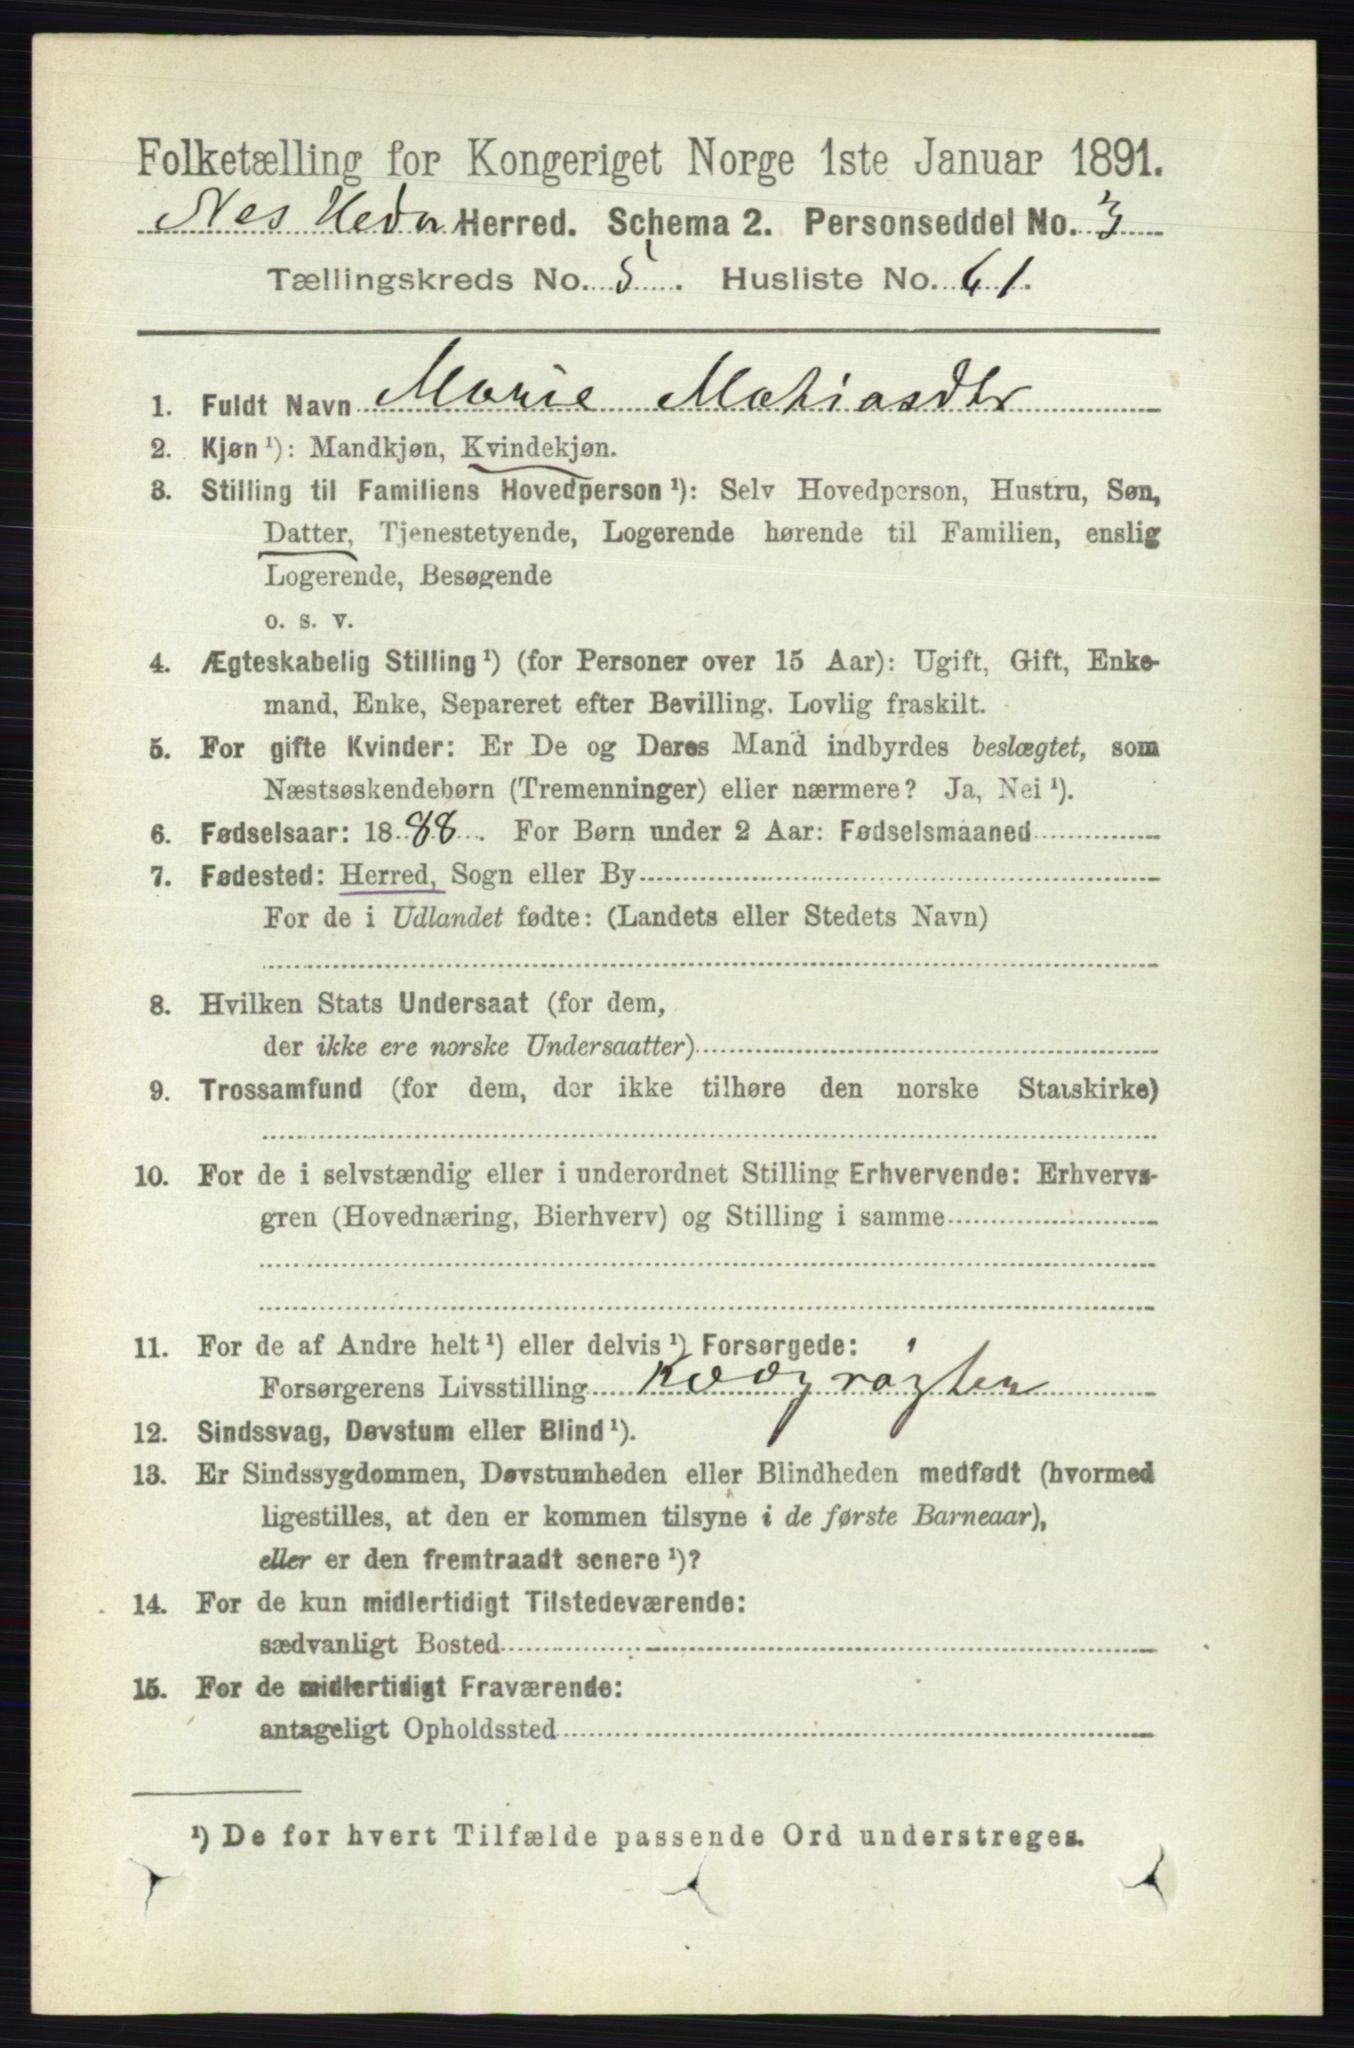 Folketælling for Kongeriget Norge 1ste Januar 1891.
Nes Hedm Herred. Schema 2. Personseddel No. 3
Tællingskreds No. 5. Husliste No. 61.
1. Fuldt Navn Marie Mathiasdtr
2. Kjøn ¹): Mandkjøn, Kvindekjøn.
3. Stilling til Familiens Hovedperson ¹): Selv Hovedperson, Hustru, Søn,
Datter, Tjenestetyende, Logerende hørende til Familien, enslig
Logerende, Besøgende
o. s. v.
4. Ægteskabelig Stilling ¹) (for Personer over 15 Aar): Ugift, Gift, Enke-
mand, Enke, Separeret efter Bevilling. Lovlig fraskilt.
5. For gifte Kvinder: Er De og Deres Mand indbyrdes beslægtet, som
Næstsøskendebørn (Tremenninger) eller nærmere? Ja, Nei ¹).
6. Fødselsaar: 1888. For Børn under 2 Aar: Fødselsmaaned
7. Fødested: Herred, Sogn eller By
For de i Udlandet fødte: (Landets eller Stedets Navn)
8. Hvilken Stats Undersaat (for dem,
der ikke ere norske Undersaatter)
9. Trossamfund (for dem, der ikke tilhøre den norske Statskirke)
10. For de i selvstændig eller i underordnet Stilling Erhvervende: Erhvervs-
gren (Hovednæring, Bierhverv) og Stilling i samme
11. For de af Andre helt ¹) eller delvis ¹) Forsørgede:
Forsørgerens Livsstilling
12. Sindssvag, Døvstum eller Blind ¹).
13. Er Sindssygdommen, Døvstumheden eller Blindheden medfødt (hvormed
ligestilles, at den er kommen tilsyne i de første Barneaar),
eller er den fremtraadt senere ¹)?
14. For de kun midlertidigt Tilstedeværende:
sædvanligt Bosted
15. For de midlertidigt Fraværende:
antageligt Opholdssted
¹) De for hvert Tilfælde passende Ord understreges.